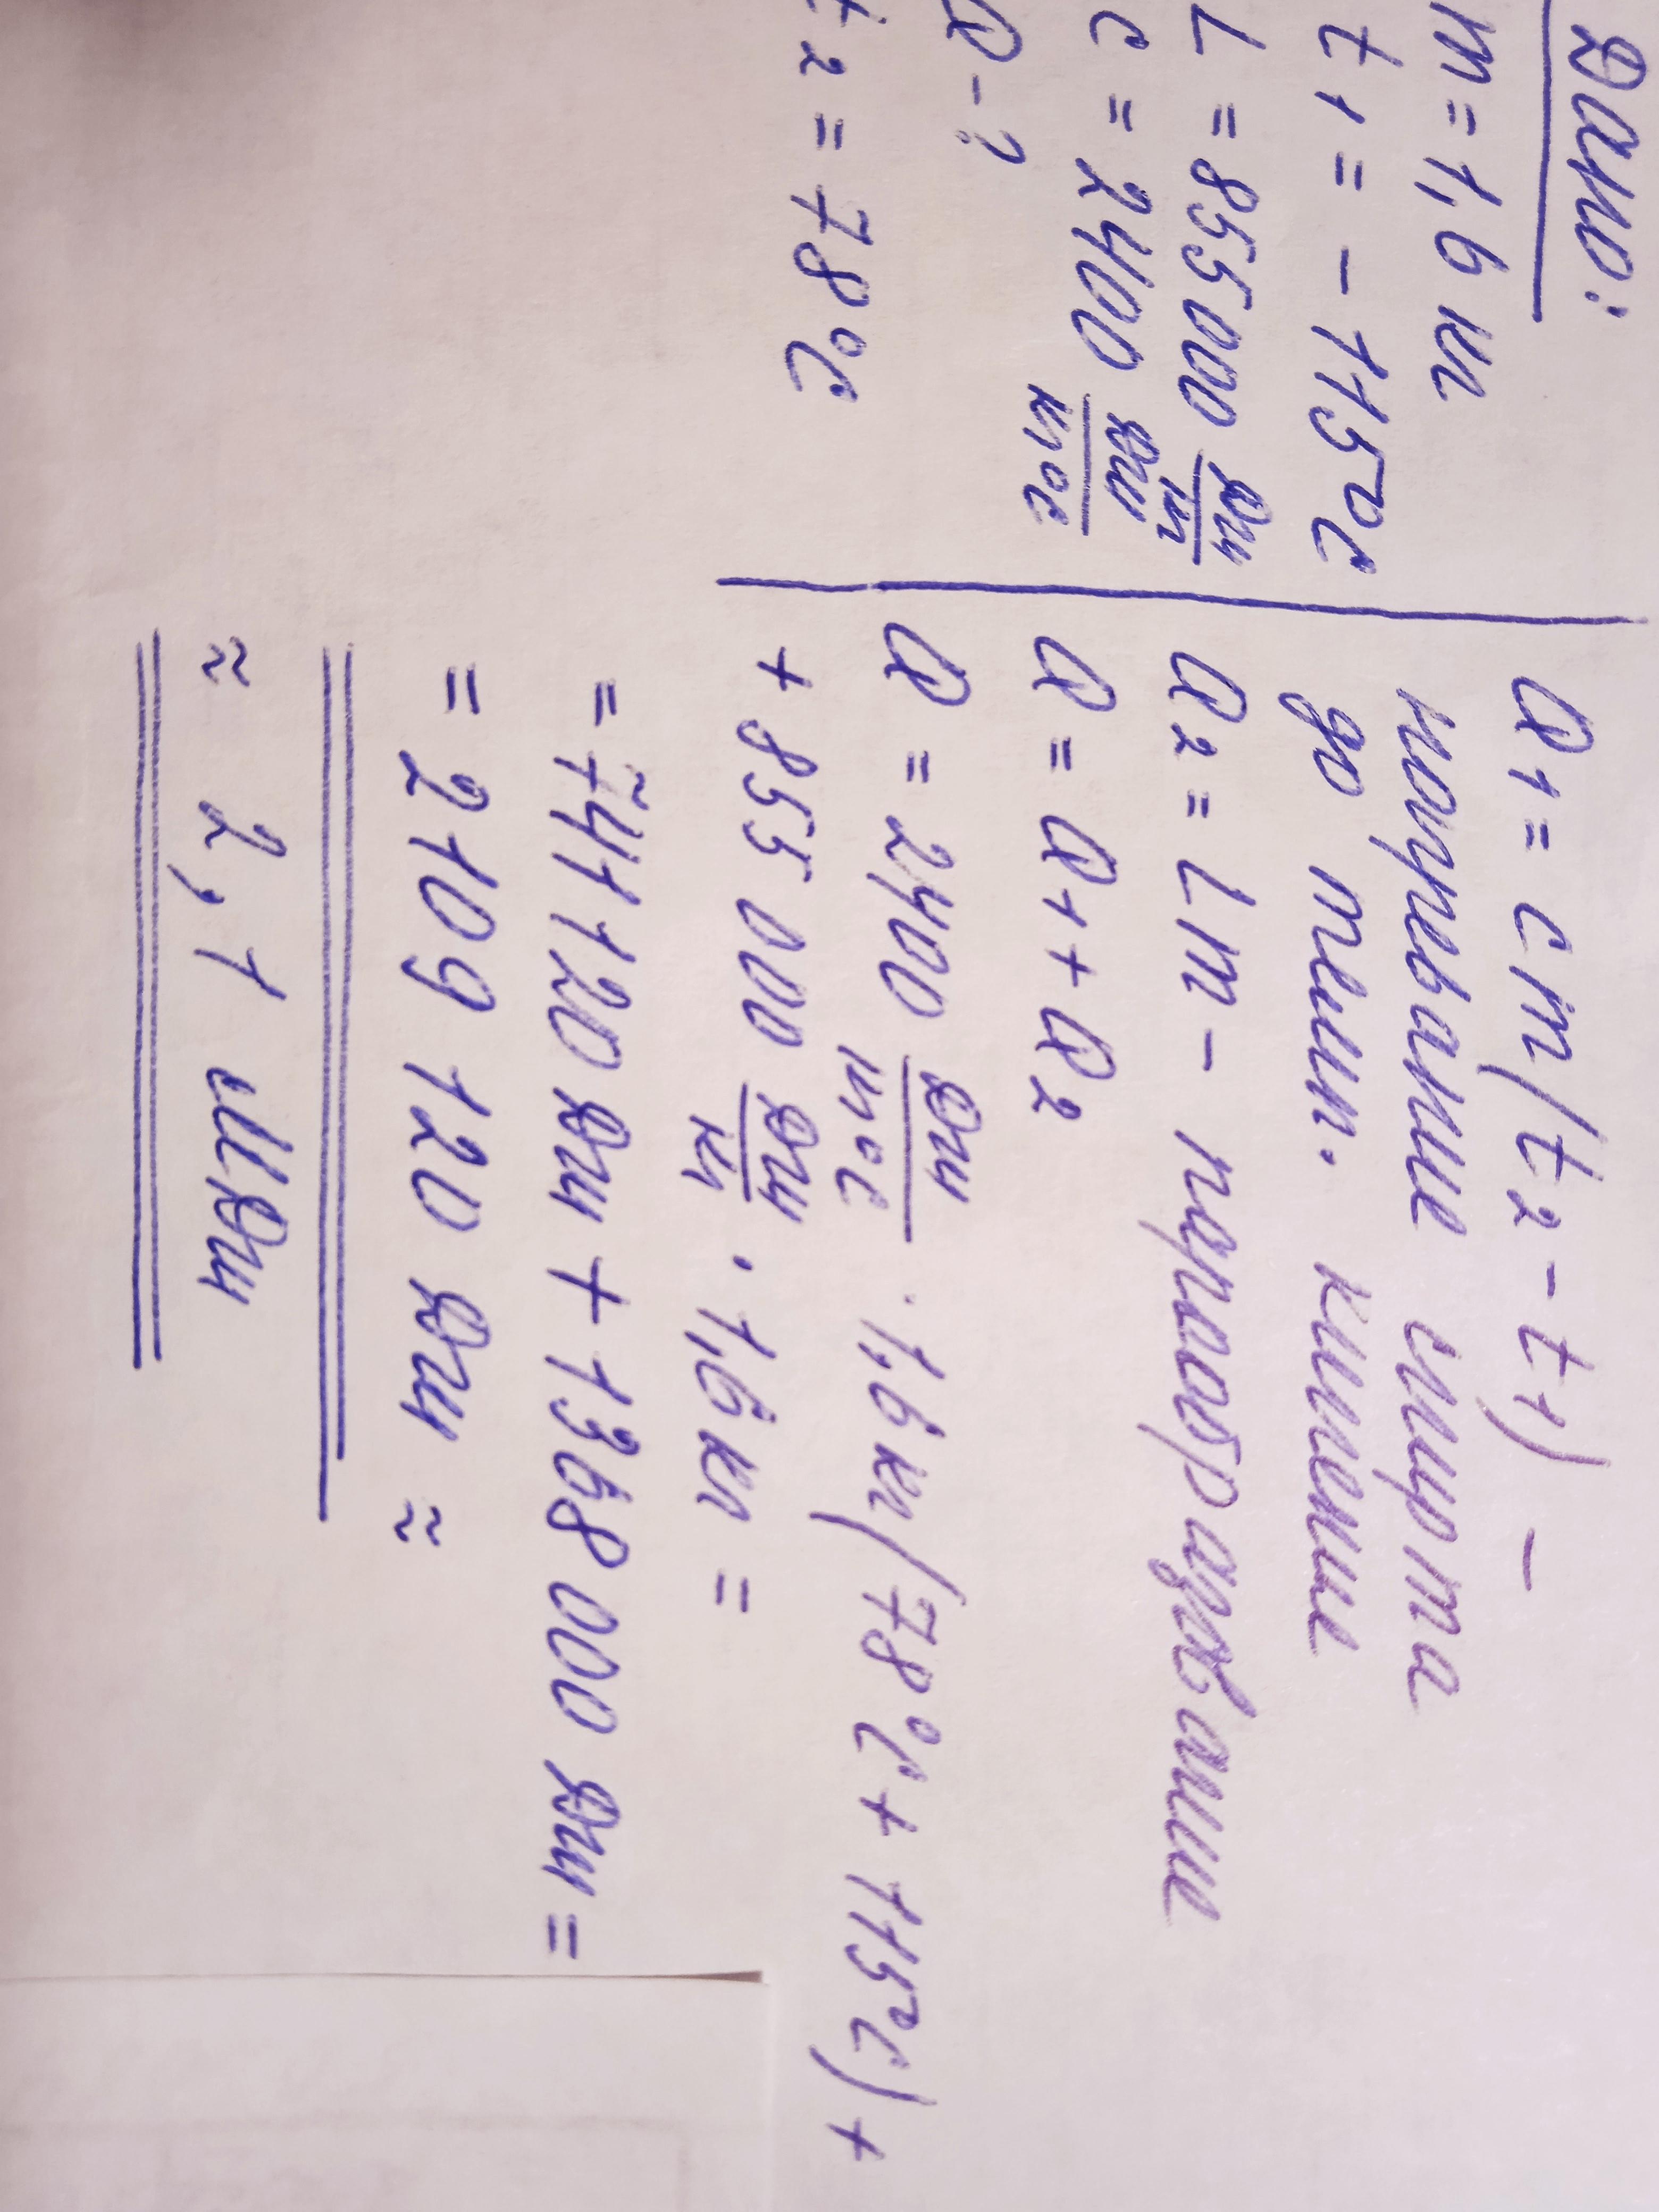 Дано:
m = 1,6 кг
t₁ = - 115°C
L = 855000 Дж/кг
c = 2400 Дж/кг°C
Q - ?
t₂ = 78°C
Q₁ = cm(t₂ - t₁) -
нагревание спирта
до темп. кипения
Q₂ = Lm - парообразование
Q = Q₁ + Q₂
Q = 2400 Дж/кг°C · 1,6 кг (78°C + 115°C) +
+ 855 000 Дж/кг · 1,6 кг =
= 741120 Дж + 1368 000 Дж =
= 2109 120 Дж ≈
≈ 2,1 МДж